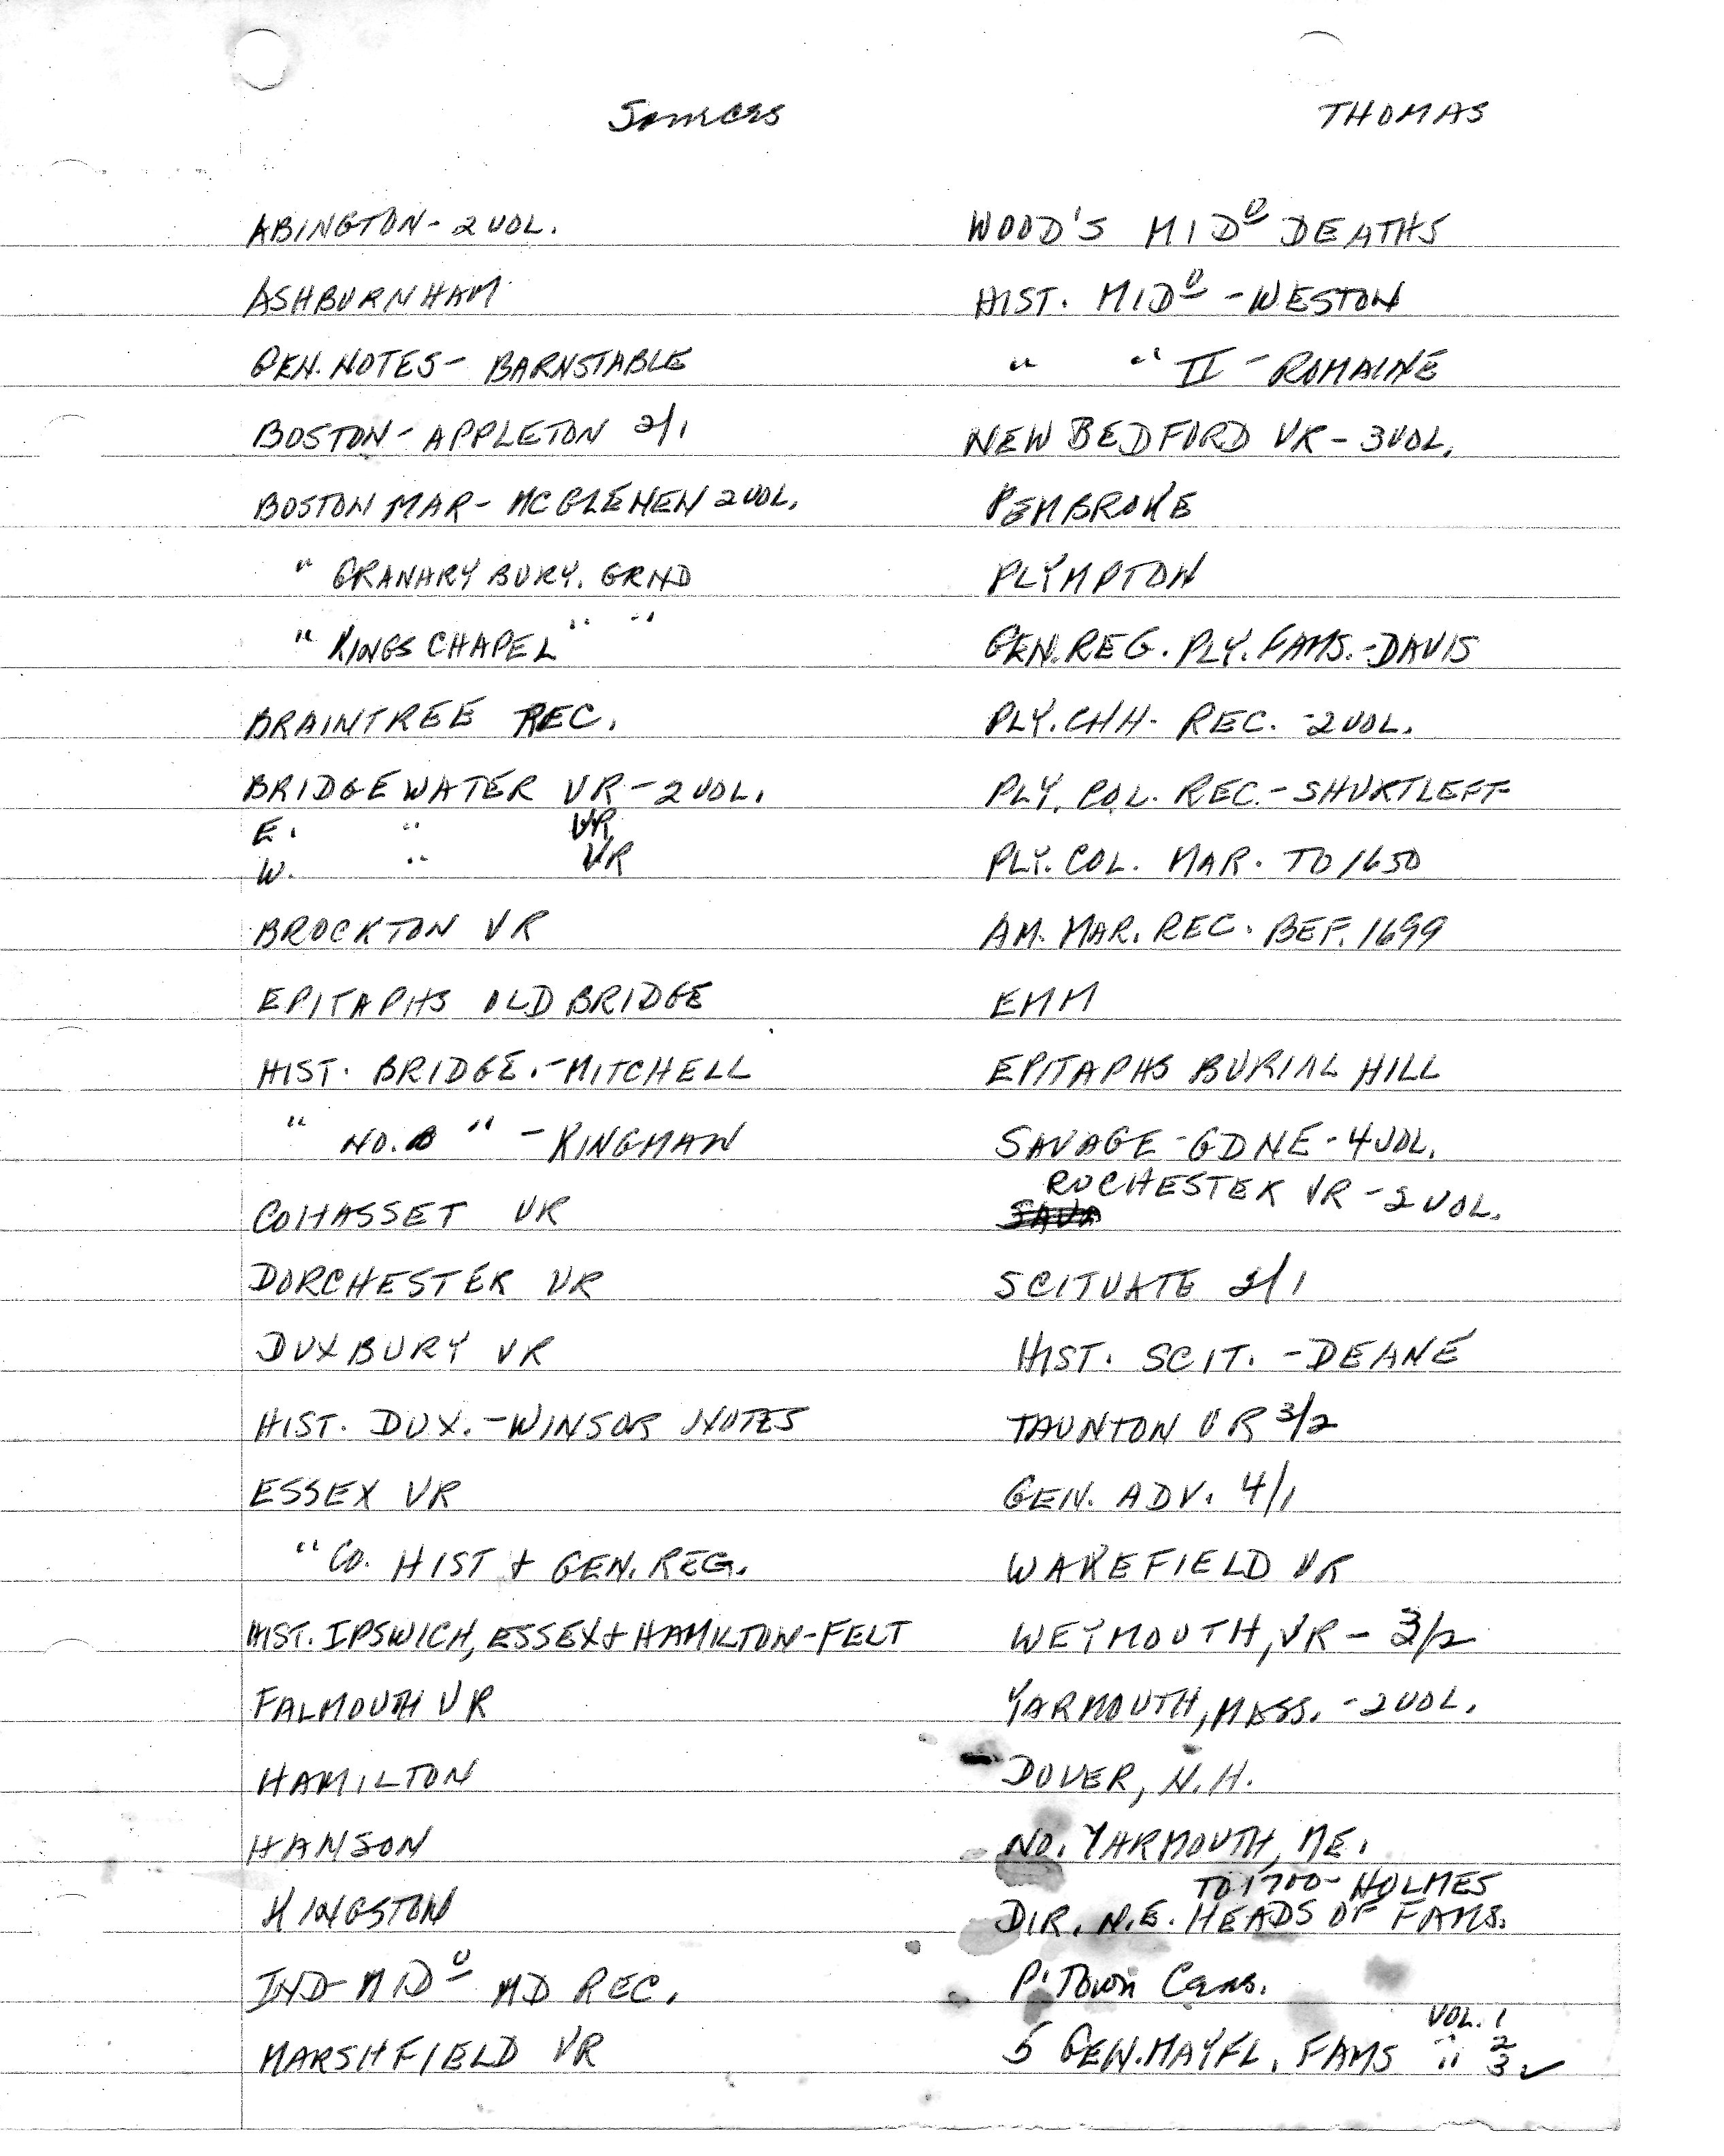 Sources
THOMAS
ABINGTON - 2 VOL.
ASHBURNHAM
GEN. NOTES - BARNSTABLE
BOSTON - APPLETON 2/1
BOSTON MAR - MCGLENEN 2 VOL.
" GRANARY BURY. GRND
" KINGS CHAPEL " "
BRAINTREE REC.
BRIDGEWATER VR - 2 VOL.
E. " VR
W. " VR
BROCKTON VR
EPITAPHS OLD BRIDGE
HIST. BRIDGE. - MITCHELL
" NO. B " - KINGMAN
COHASSET VR
DORCHESTER VR
DUXBURY VR
HIST. DUX. - WINSOR NOTES
ESSEX VR
" CO. HIST + GEN. REG.
HIST. IPSWICH, ESSEX + HAMILTON - FELT
FALMOUTH VR
HAMILTON
HANSON
KINGSTON
IND - MIDO MD REC.
MARSHFIELD VR
WOOD'S MIDO DEATHS
HIST. MIDO - WESTON
" " II - ROMAINE
NEW BEDFORD VR - 3 VOL.
PEMBROKE
PLYMPTON
GEN. REG. PLY. FAMS. - DAVIS
PLY. CHH. REC. - 2 VOL.
PLY. COL. REC. - SHURTLEFF
PLY. COL. MAR. TO 1650
AM. MAR. REC. BEF. 1699
EMM
EPITAPHS BURIAL HILL
SAVAGE - GDNE - 4 VOL.
ROCHESTER VR - 2 VOL.
SCITUATE 2/1
HIST. SCIT. - DEANE
TAUNTON VR 3/2
GEN. ADV. 4/1
WAKEFIELD VR
WEYMOUTH, VR - 3/2
YARMOUTH, MASS. - 2 VOL.
DOVER, N.H.
NO. YARMOUTH, ME.
TO 1700 - HOLMES
DIR. N.E. HEADS OF FAMS.
P'Town Cems.
VOL. 1
5 GEN. MAYFL. FAMS " 2
" 3 ✓